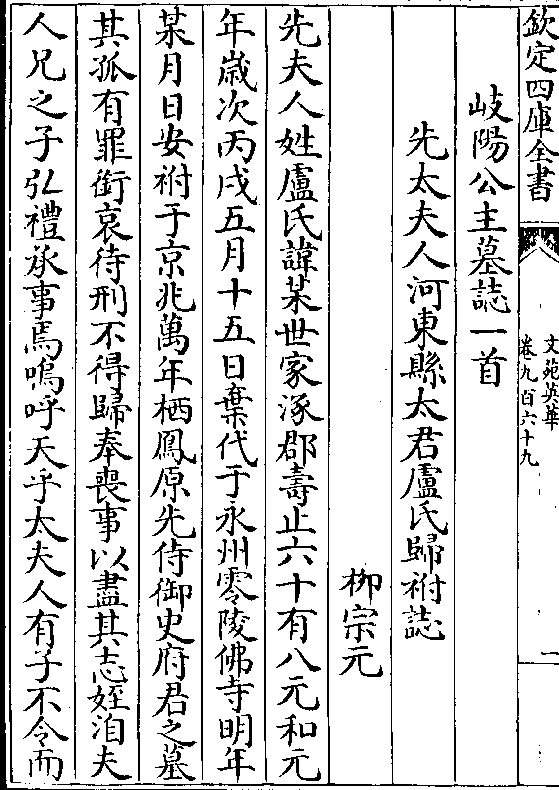 欽定四庫全書
文苑英華
卷九百六十九
一
岐陽公主墓誌一首
先太夫人河東縣太君盧氏歸祔誌
栁宗元
先夫人姓盧氏諱某世家涿郡壽止六十有八元和元
年歳次丙戌五月十五日棄代于永州零陵佛寺明年
某月日安祔于京兆萬年栖鳳原先侍御史府君之墓
其孤有罪銜哀待刑不得歸奉喪事以盡其志姪洎夫
人兄之子弘禮承事焉嗚呼天乎太夫人有子不令而